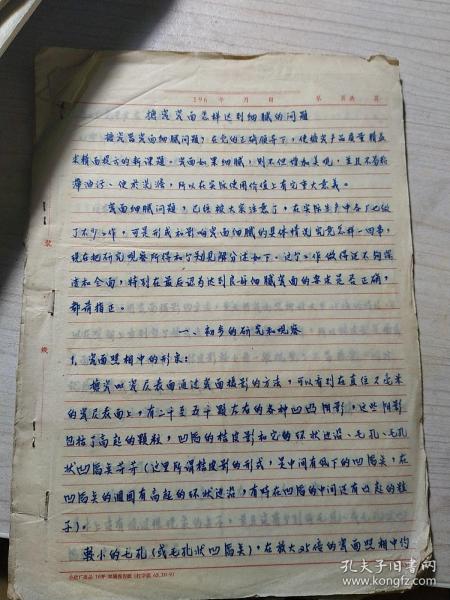 196 年 月 日 第 页 共 页
搪瓷瓷面怎样达到细腻的问题
搪瓷器瓷面细腻问题,在党的正确领导下,使搪瓷产品质量精益
求精而提高的新课题。瓷面如果细腻,则不但增加美观,并且不易粘
油污、便于洗涤,所以在实际使用价值上有它重大意义。
瓷面细腻问题,已经被大家注意了,在实际生产中各厂也做
了不少工作,可是形成和影响瓷面细腻的具体情况究竟怎样一回事,
现在把研究观察所得和个别见解分述如下。这个工作做得还不够深
透和全面,特别在最后认为达到良好细腻瓷面的要求是否正确,
都希指正。
一、初步的研究和观察
1、瓷面照相中的形象:
搪瓷皿瓷层表面通过瓷面摄影的方法,可以看到在直径2毫米
的瓷层表面上,有二千至五千颗左右的各种凹凸阴影,这些阴影
包括了高起的颗粒,凹陷的桔皮影和它的环状边沿、毛孔、毛孔
状凹陷点等等(这里所谓桔皮影的形式,是中间有低下的凹陷点,在
凹陷点的周围有高起的环状边沿,有时在凹陷的中间还有凸起的粒
子)。
较小的毛孔(或毛孔状凹陷点),在放大25倍的瓷面照相中约
孔夫子旧书网